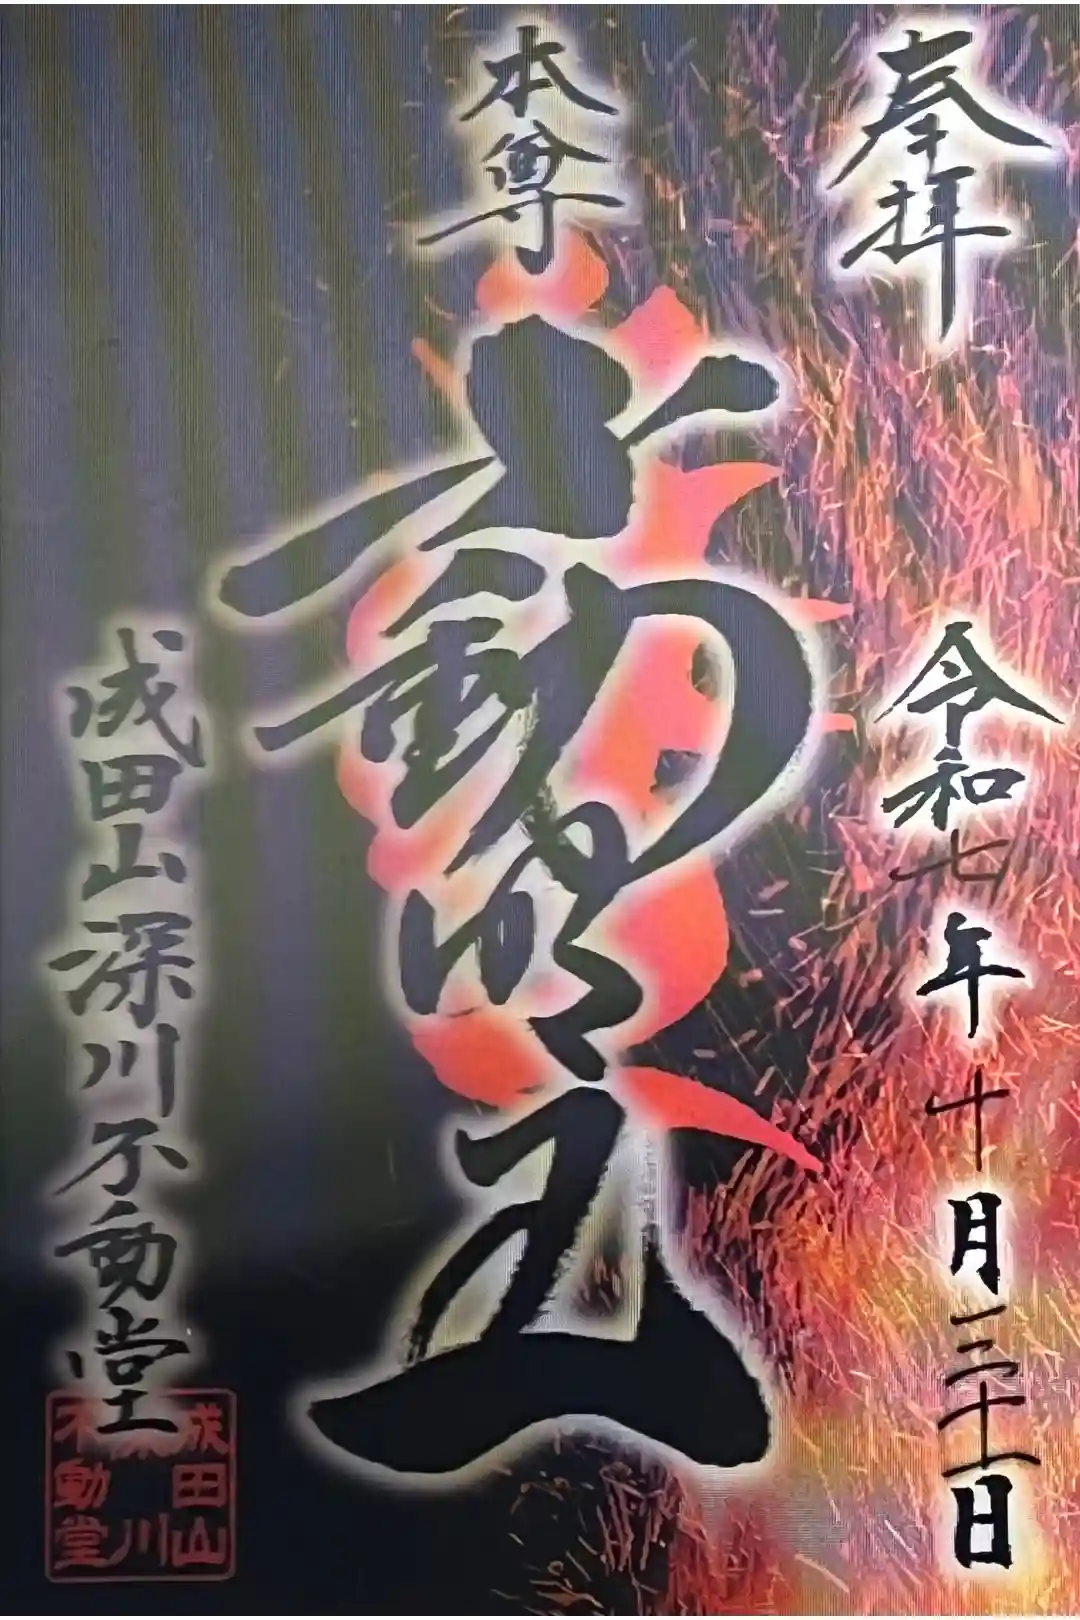 奉拝
令和七年十月三十一日
本尊
不動明王
成田山深川不動堂
成田山
深川
不動堂